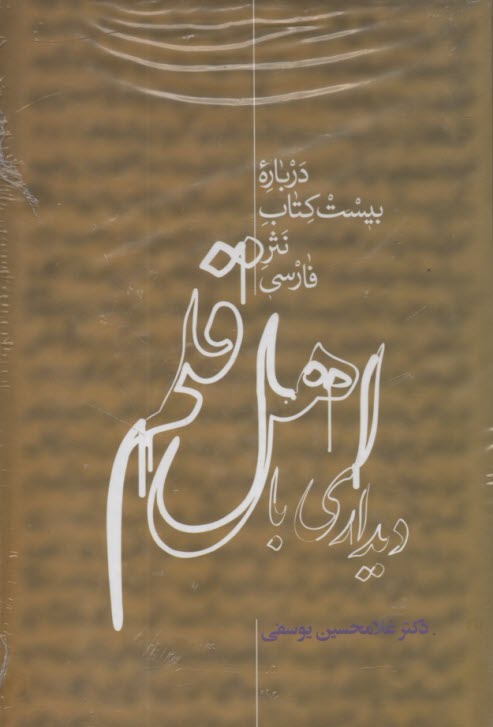 دَرْبارِهٔ
بیسْتْ کِتابِ
نَثْرِ
فارْسی
دیداری با اهل قلم
دکتر غلامحسین یوسفی